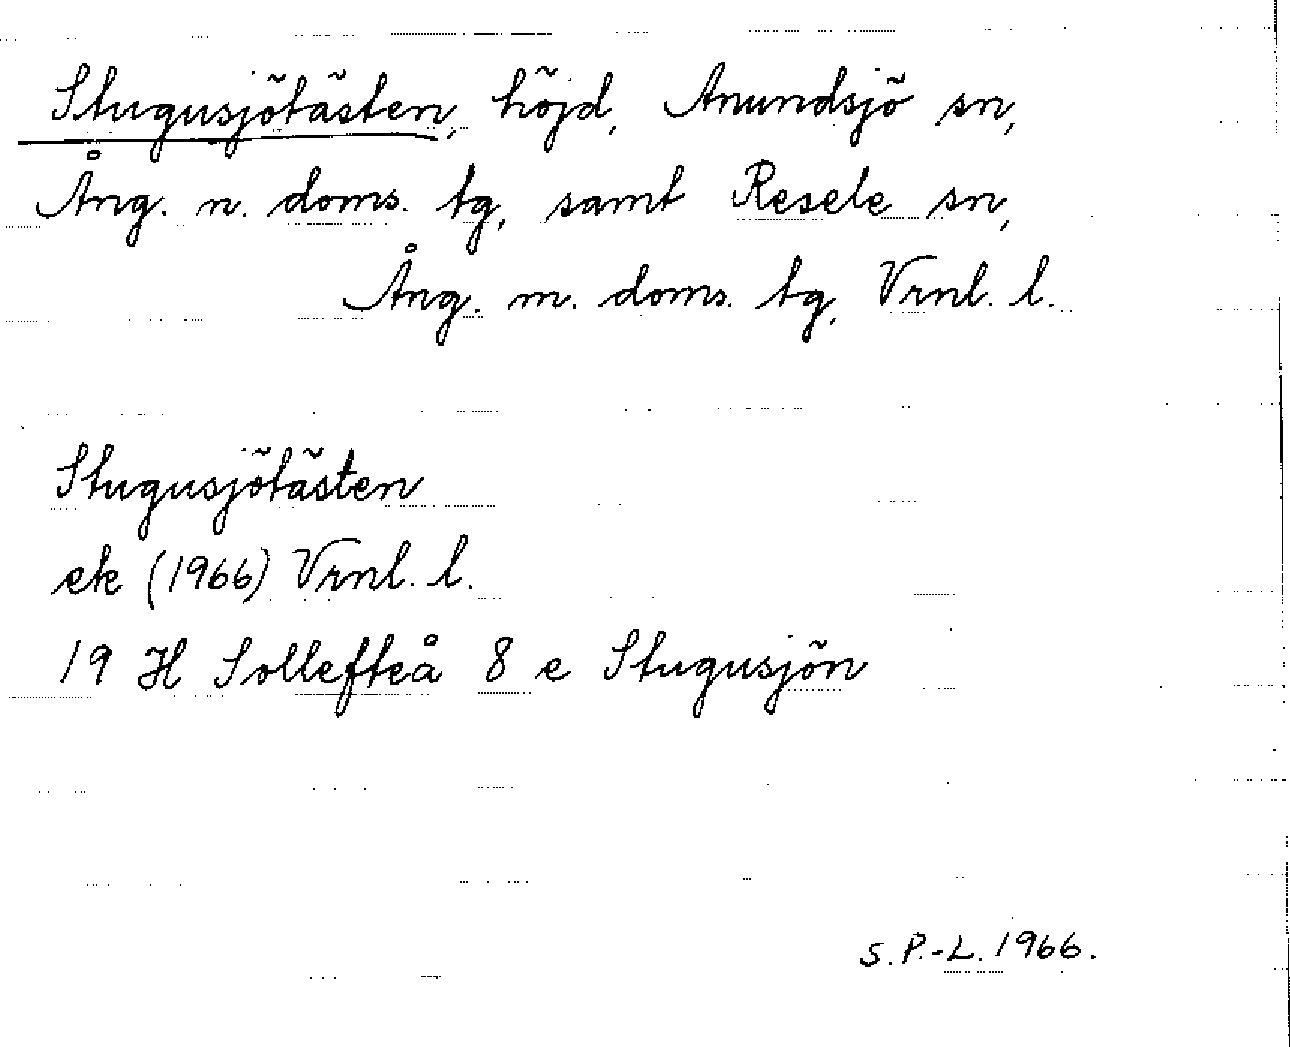 Stugusjötästen, höjd, Anundsjö sn,
Ång. n. doms. tg, samt Resele sn,
Ång. m. doms. tg, Vrnl. l.
Stugusjötästen
ek (1966) Vrnl. l.
19 H Sollefteå 8 e Stugusjön
S.P.-L. 1966.